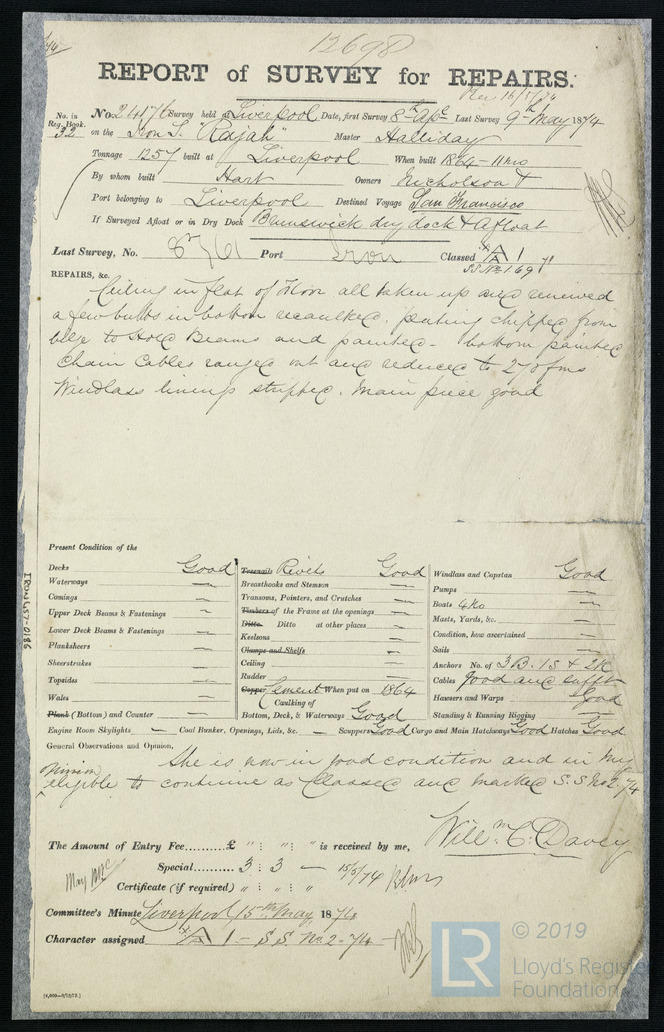 12698
REPORT of SURVEY for REPAIRS.
Rec 16/5/74
No. in Reg. Book. 32
No. 24176 Survey held at Liverpool Date, first Survey 8th Apl Last Survey 9th May 1874
on the Iron S. "Rajah" Master Halliday
Tonnage 1257 built at Liverpool When built 1864-11mo
By whom built Hart Owners Nicholson &
Port belonging to Liverpool Destined Voyage San Francisco
If Surveyed Afloat or in Dry Dock Brunswick dry dock & Afloat
Last Survey, No. Port Iron Classed A 1
REPAIRS, &c.
Ceiling in flat of Floor all taken up and renewed
a few butts in bottom recaulked. plating chipped from
bilge to Hold Beams and painted - bottom painted
Chain Cables ranged out and reduced to 270 fms
Windlass linings stripped. Main piece good
Present Condition of the
Decks Good
Waterways —
Comings —
Upper Deck Beams & Fastenings —
Lower Deck Beams & Fastenings —
Planksheers —
Sheerstrakes —
Topsides —
Wales —
Plank (Bottom) and Counter —
Treenails Rivets Good
Breasthooks and Stemson —
Transoms, Pointers, and Crutches —
Timbers of the Frame at the openings —
Ditto Ditto at other places —
Keelsons —
Clamps and Shelfs —
Ceiling —
Rudder —
Copper Cement When put on 1864
Caulking of
Bottom, Deck, & Waterways Good
Windlass and Capstan Good
Pumps —
Boats 4 No
Masts, Yards, &c. —
Condition, how ascertained —
Sails —
Anchors No. of 3 B. 1 S & 2 K
Cables Good and sufft
Hawsers and Warps Good
Standing & Running Rigging
Engine Room Skylights — Coal Bunker, Openings, Lids, &c. — Scuppers Good Cargo and Main Hatchways Good Hatches Good
General Observations and Opinion,
She is now in good condition and in my
opinion eligible to continue as Classed and marked S.S. No 2-74
The Amount of Entry Fee.........£ " : " : " is received by me, Willm. C. Davey
Special......... 3 : 3 — 15/5/74
Certificate (if required) " : " : "
Committee's Minute Liverpool 15th May 1874
Character assigned A 1 - S S No. 2-74
[4,000—9/12/72.]
IRON457-0186
LR
© 2019
Lloyd's Register
Foundation